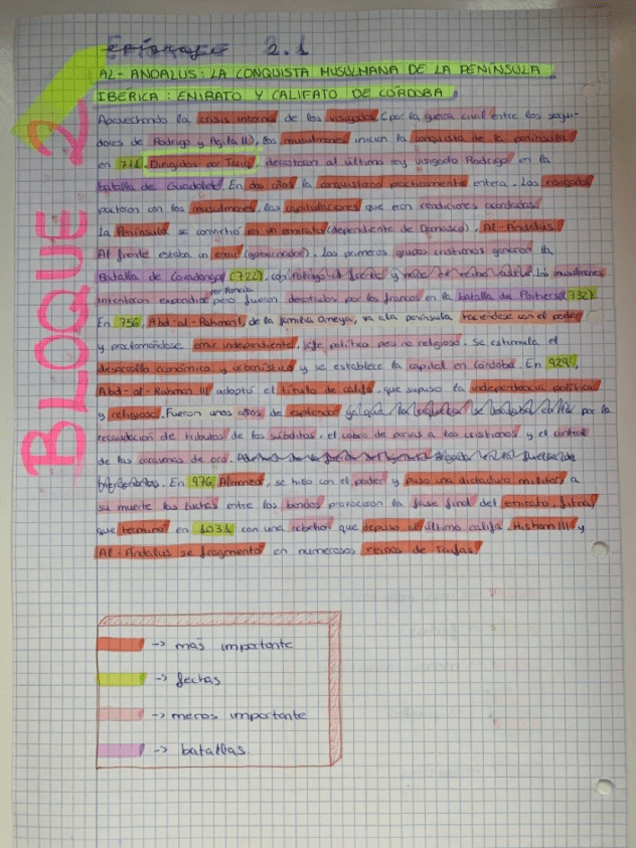 BLOQUE 2
epígrafe 2.1
AL-ANDALUS: LA CONQUISTA MUSULMANA DE LA PENÍNSULA
IBÉRICA: EMIRATO Y CALIFATO DE CÓRDOBA
Aprovechando la crisis interna de los visigodos (por la guerra civil entre los segui-
dores de Rodrigo y Agila II), los musulmanes inician la conquista de la península
en 711. Dirigidos por Tariq, derrotaron al último rey visigodo Rodrigo en la
batalla de Guadalete. En dos años la conquistaron prácticamente entera. Los visigodos
pactaron con los musulmanes, las capitulaciones que eran rendiciones acordadas.
La Península se convirtió en un emirato (dependiente de Damasco), Al-Andalus.
Al frente estaba un emir (gobernador). Los primeros grupos cristianos ganaron la
Batalla de Covadonga (722), con Pelayo al frente y los musulmanes
intentaron expandirse por Francia pero fueron derrotados por los francos en la batalla de Poitiers (732).
En 756, Abd-al-Rahman I, de la familia omeya, va a la península haciéndose con el poder
y proclamándose emir independiente, jefe político pero no religioso. Se estimula el
desarrollo económico y urbanístico y se establece la capital en Córdoba. En 929,
Abd-al-Rahman III adoptó el título de califa, que supuso la independencia política
y religiosa. Fueron unos años de esplendor por la
recaudación de tributos de los súbditos, el cobro de parias a los cristianos y el control
de las caravanas de oro.
En 976, Almanzor, se hizo con el poder y puso una dictadura militar, a
su muerte las luchas entre los bandos provocaron la fase final del emirato,
que terminó en 1031 con una rebelión que depuso al último califa Hisham III y
Al-Andalus se fragmentó en numerosos reinos de Taifas.
-> más importante
-> fechas
-> menos importante
-> batallas